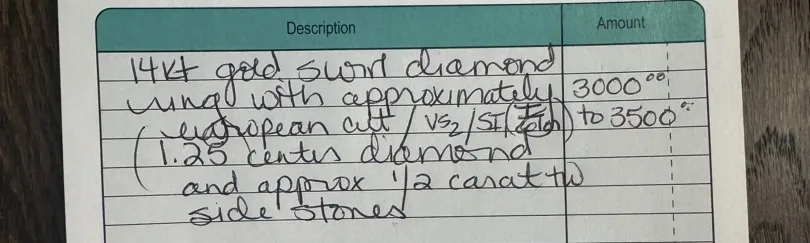 Description Amount
14kt gold swirl diamond
ring with approximately 3000⁰⁰
european cut / VS2/SI ( color) to 3500
( 1.25 center diamond
and approx 1/2 carat tw
side stones